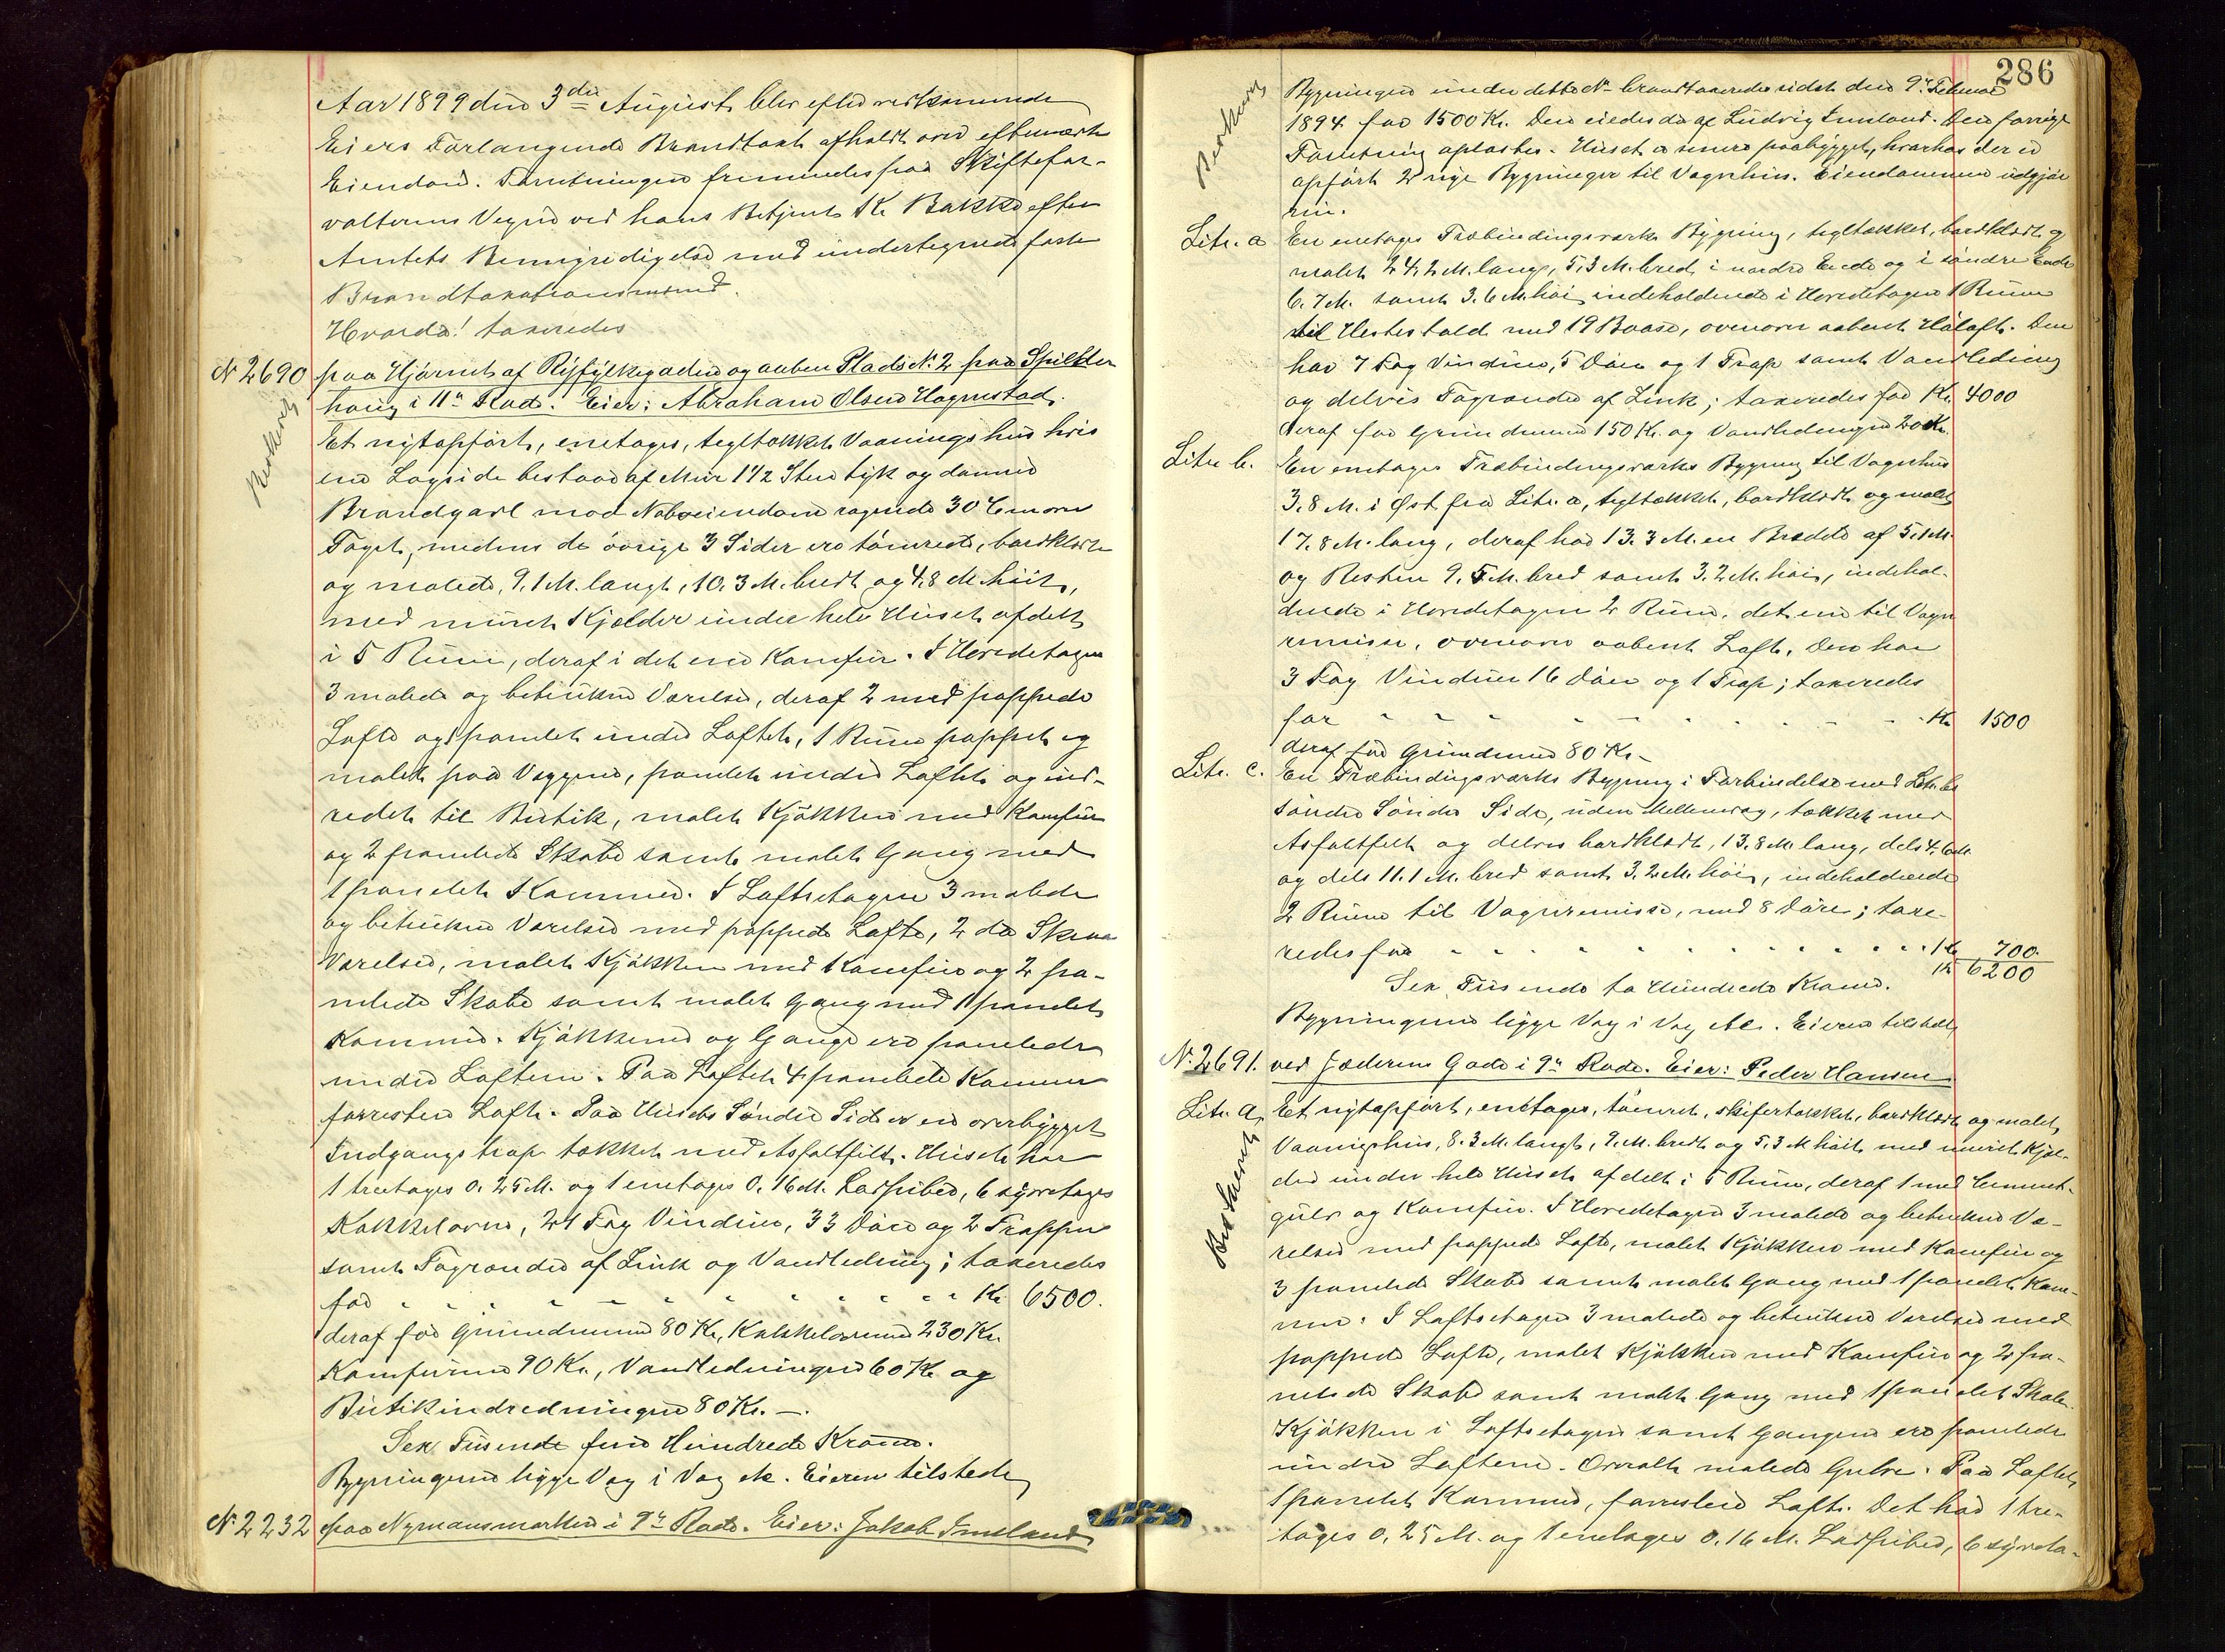 Aar 1899 den 3die August blev efter vedkommende
Eiers Forlangende Brandtaxt afholdt over efternævnte
Eiendom. Forretningen fremmedes paa Skiftefor-
valterens Vegne ved hans Betjent K. Bakke efter
Amtets Bemyndigelse med undertegnede faste
Brandtaxationsmænd.
Hvorda! taxeredes
No 2690 paa Hjørnet af Ryfylkegaden og aaben Plads No. 2 paa Spilder
haug i 11te Rode. Eier: Abraham Olsen Hognestad.
Et nytopført, enetages, tegltækket Vaaningshus hvis
ene Langside bestaar af Mur 1 1/2 Sten tyk og danner
Brandgavl mod Naboeiendom ragende 30 Cm over
Taget, medens de øvrige 3 Sider ere tømrede, bordklædte
og malede, 9.1 M. langt, 10.3 M. bredt og 4.8 M. høit,
med muret Kjælder under hele Huset afdelt
i 5 Rum, deraf i det ene Komfur. I Hovedetagen
3 malede og betrukne Værelser, deraf 2 med pappede
Lofte og panelet under Loftet, 1 Rum pappet og
malet paa Væggene, panelet under Loftet og ind-
redet til Butik, malet Kjøkken med Komfur
og 2 panelede Skabe samt malet Gang med
1 panelet Kammer. I Loftsetagen 3 malede
og betrukne Værelser med pappede Lofte, 2 do Skraa
Værelser, malet Kjøkken med Komfur og 2 pa-
nelede Skabe samt malet Gang med 1 panelet
Kammer. Kjøkkener og Gange ere panelede
under Loftene. Paa Loftet 4 panelede Kamere
forresten Loft. Paa Husets Søndre Side er en overbygget
Indgangstrap tækket med Asfaltfilt. Huset har
1 treetages 0.25 M. og 1 enetages 0.16 M. Ladpiber, 6 syvetages
Kakkelovne, 24 Fag Vinduer, 33 Døre og 2 Trapper
samt Tagrender af Zink og Vandledning; taxeredes
for Kr. 6500.
deraf for Grundmuren 80 Kr., Kakkelovnene 230 Kr.
Komfurene 90 Kr., Vandledningen 60 Kr. og
Butikindredningen 80 Kr. —.
Sex Tusende fem Hundrede Kroner.
Bygningerne ligge Væg i Væg etc. Eieren tilstede
No 2232 paa Nymansmarken i 9de Rode. Eier: Jakob Imsland
286
Bygningen under dette No brandtaxeredes sidst den 9de Februar
1894 for 1500 Kr. Den eiedes da af Ludvig Imsland. Den forrige
Forretning oplæstes. Huset a senere paabygget, hvorhos der er
opført 2 nye Bygninger til Vognhus. Eiendommen udgjør
nu:
Litr. a En enetages Træbindingsværks Bygning, tegltækket, bordklædt og
malet 24,2 M. lang, 5,3 M. bred i nordre Ende og i søndre Ende
6.7 M. samt 3.6 M. høi, indeholdende i Hovedetagen 1 Rum
til Hestestald med 19 Baase, ovenover aabent Høloft. Den
har 7 Fag Vinduer, 5 Døre og 1 Trap samt Vandledning
og delvis Tagrender af Zink; taxeredes for Kr. 4000
deraf for Grundmuren 150 Kr. og Vandledningen 20 Kr.
Litr. b. En enetages Træbindingsværks Bygning til Vognhus
3.8 M. i Øst fra Litr. a, tegltækket, bordklædt og malet
17.8 M. lang, deraf har 13.3 M. en Bredde af 5.1 M.
og Resten 9.5 M. bred samt 3.2 M. høi, indehol-
dende i Hovedetagen 2 Rum, det ene til Vogn
remisse, ovenover aabent Loft. Den har
3 Fag Vinduer 16 Døre og 1 Trap; taxeredes
for Kr. 1500
deraf for Grundmuren 80 Kr. —
Litr. c. En Træbindingsværks Bygning i Forbindelse med Litr. bs
søndre Søndre Side, uden Mellemvæg, tækket med
Asfaltfilt og delvis bordklædt, 13.8 M. lang, dels 4.6 M.
og dels 11.1 M. bred samt 3.2 M. høi, indeholdende
2 Rum til Vognremisse, med 8 Døre; taxe-
redes for Kr. 700.
Kr. 6200
Sex Tusende to Hundrede Kroner.
Bygningerne ligge Væg i Væg etc. Eieren tilstede
No. 2691. ved Jæderens Gade i 9de Rode. Eier: Peder Hansen
Litr. a, Et nytopført, enetages, tømret, skifertækket, bordklædt og malet
Vaaningshus, 8.3 M. langt, 9. M. bredt og 5,3 M høit med muret Kjæl-
der under hele Huset afdelt i 5 Rum, deraf 1 med Cement-
gulv og Komfur. I Hovedetagen 3 malede og betrukne Væ-
relser med pappede Lofte, malet Kjøkken med Komfur og
3 panelede Skabe samt malet Gang med 1 panelet Kam-
mer. I Loftsetagen 3 malede og betrukne Værelser med
pappede Lofte, malet Kjøkken med Komfur og 2 pa-
nelede Skabe samt malet Gang med 1 panelet Skab.
Kjøkken i Loftsetagen samt Gangene ere panelede
under Loftene. Overalt malede Gulve. Paa Loftet
1 panelet Kammer, forresten Loft. Det har 1 tre-
etages 0.25 M. og 1 enetages 0.16 M. Ladpiber, 6 syveta-